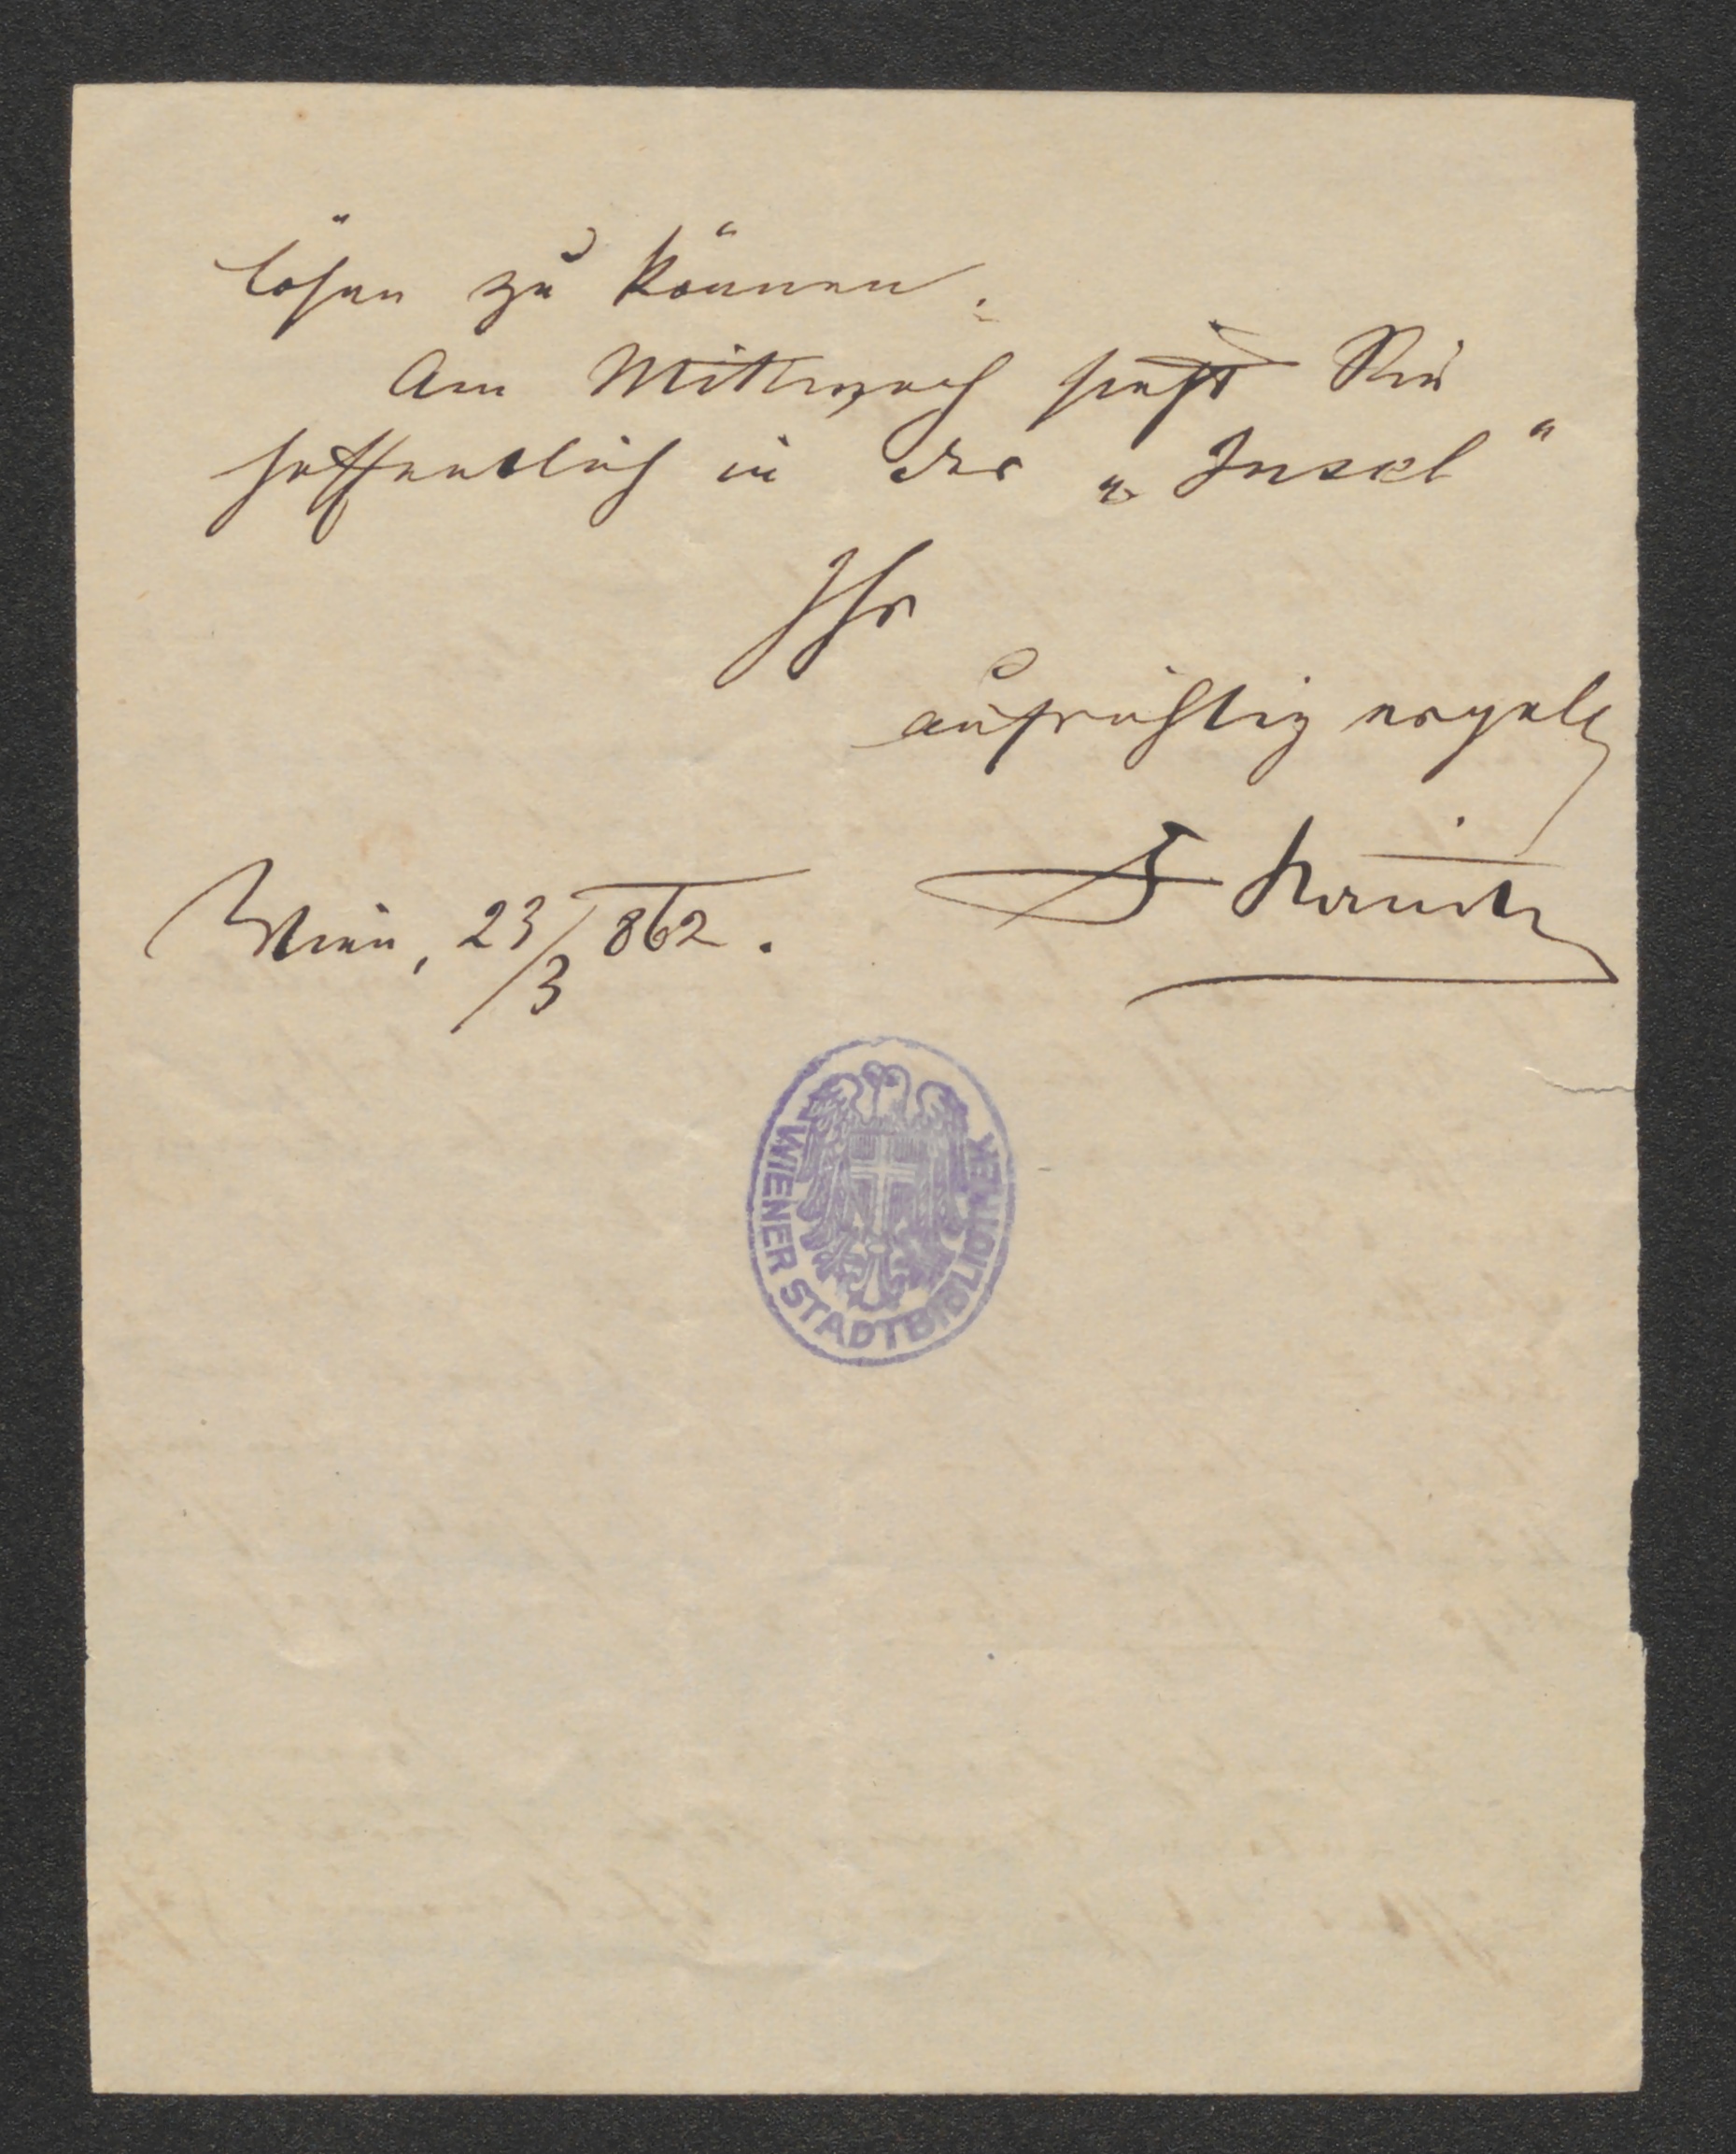 lösen zu können.
Am Mittwoch sieht Sie
hoffentlich in der „Insel“
Ihr
aufrichtig ergeb
F Kanitz
Wien, 23/3 862.
WIENER STADTBIBLIOTHEK